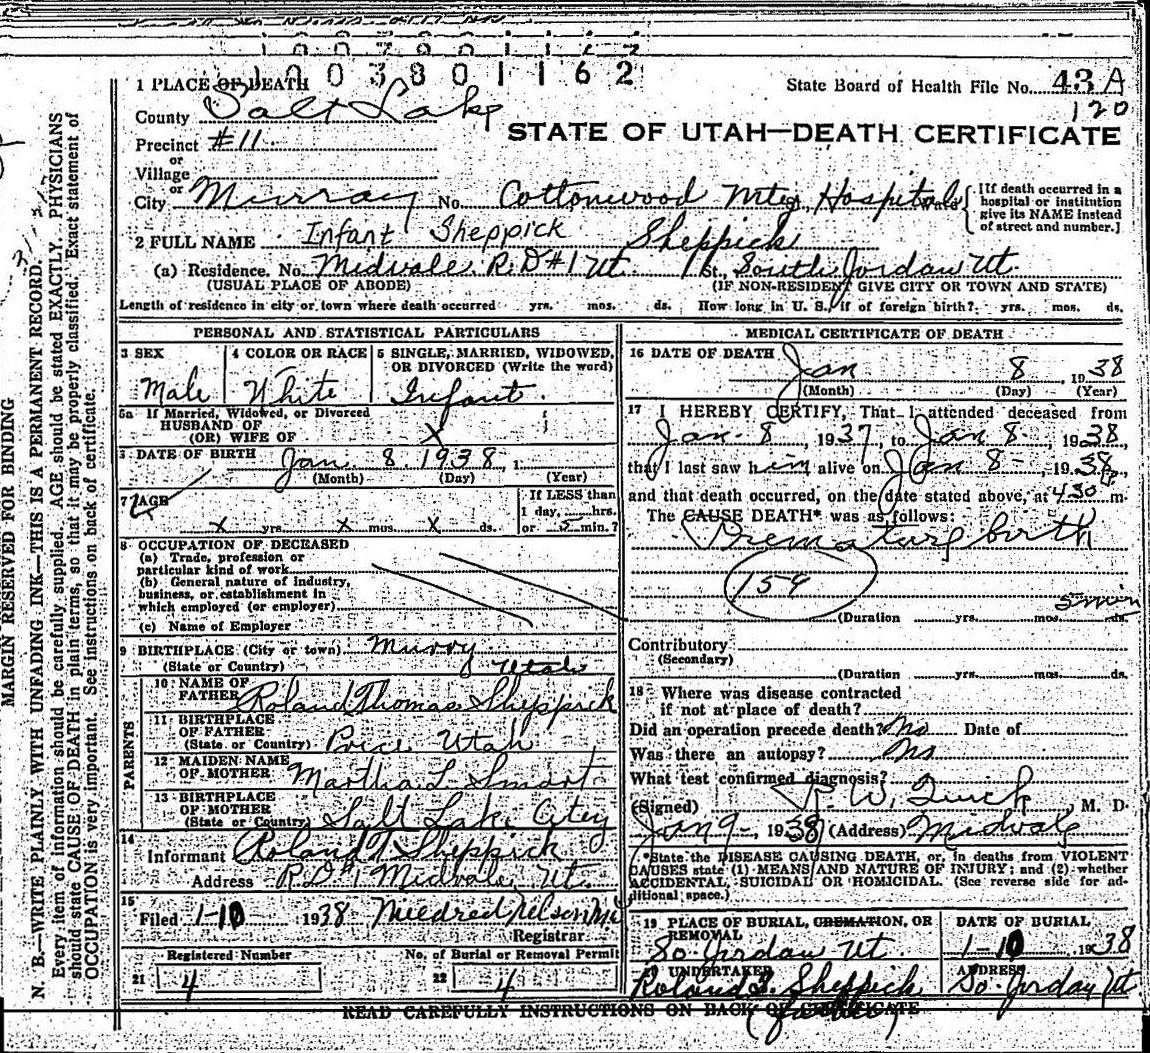 1003801162
1 PLACE OF DEATH
State Board of Health File No. 43 A
120
County Salt Lake
STATE OF UTAH—DEATH CERTIFICATE
Precinct #11
or
Village
or
City Murray No. Cottonwood Hospital
[If death occurred in a hospital or institution give its NAME instead of street and number.]
2 FULL NAME Infant Sheppick Sheppick
(a) Residence. No. Midvale R.D #1 Ut. St., South Jordan Ut.
(USUAL PLACE OF ABODE) (IF NON-RESIDENT GIVE CITY OR TOWN AND STATE)
Length of residence in city or town where death occurred yrs. mos. ds. How long in U. S., if of foreign birth? yrs. mos. ds.
PERSONAL AND STATISTICAL PARTICULARS
3 SEX Male
4 COLOR OR RACE White
5 SINGLE, MARRIED, WIDOWED, OR DIVORCED (Write the word) Infant.
5a If Married, Widowed, or Divorced
HUSBAND OF
(OR) WIFE OF X
DATE OF BIRTH Jan. 8 1938, 1
(Month) (Day) (Year)
7 AGE
x yrs. x mos. x ds.
If LESS than
1 day, hrs.
or 5 min.?
8 OCCUPATION OF DECEASED
(a) Trade, profession or
particular kind of work
(b) General nature of industry,
business, or establishment in
which employed (or employer)
(c) Name of Employer
9 BIRTHPLACE (City or town) Murry
(State or Country) Utah
PARENTS
10 NAME OF FATHER Roland Thomas Sheppick
11 BIRTHPLACE OF FATHER
(State or Country) Price Utah
12 MAIDEN NAME OF MOTHER Martha L. Smart
13 BIRTHPLACE OF MOTHER
(State or Country) Salt Lake City
14 Informant Roland T Sheppick
Address R.D #1 Midvale, Ut.
15 Filed 1-10 1938 Mildred Nelson
Registrar
Registered Number No. of Burial or Removal Permit
21 4 22 4
MEDICAL CERTIFICATE OF DEATH
16 DATE OF DEATH Jan 8, 1938
(Month) (Day) (Year)
17 I HEREBY CERTIFY, That I attended deceased from
Jan. 8, 1937, to Jan 8-1938,
that I last saw him alive on Jan 8-, 1938
and that death occurred, on the date stated above, at 430 m.
The CAUSE DEATH* was as follows:
Premature birth
159
5 min
(Duration yrs. mos. ds.
Contributory
(Secondary)
(Duration yrs. mos. ds.
18 Where was disease contracted
if not at place of death?
Did an operation precede death? No Date of
Was there an autopsy? No
What test confirmed diagnosis?
(Signed) W. , M. D.
Jan 9-, 1938 (Address) Midvale
*State the DISEASE CAUSING DEATH, or, in deaths from VIOLENT
CAUSES state (1) MEANS AND NATURE OF INJURY; and (2) whether
ACCIDENTAL, SUICIDAL OR HOMICIDAL. (See reverse side for additional space.)
19 PLACE OF BURIAL, CREMATION, OR REMOVAL
So. Jordan Ut
DATE OF BURIAL
1-10 1938
UNDERTAKER
Roland T. Sheppick
(father)
ADDRESS
So. Jordan Ut
READ CAREFULLY INSTRUCTIONS ON BACK OF CERTIFICATE
MARGIN RESERVED FOR BINDING
N. B.—WRITE PLAINLY, WITH UNFADING INK—THIS IS A PERMANENT RECORD.
Every item of information should be carefully supplied. AGE should be stated EXACTLY. PHYSICIANS
should state CAUSE OF DEATH in plain terms, so that it may be properly classified. Exact statement of
OCCUPATION is very important. See instructions on back of certificate.